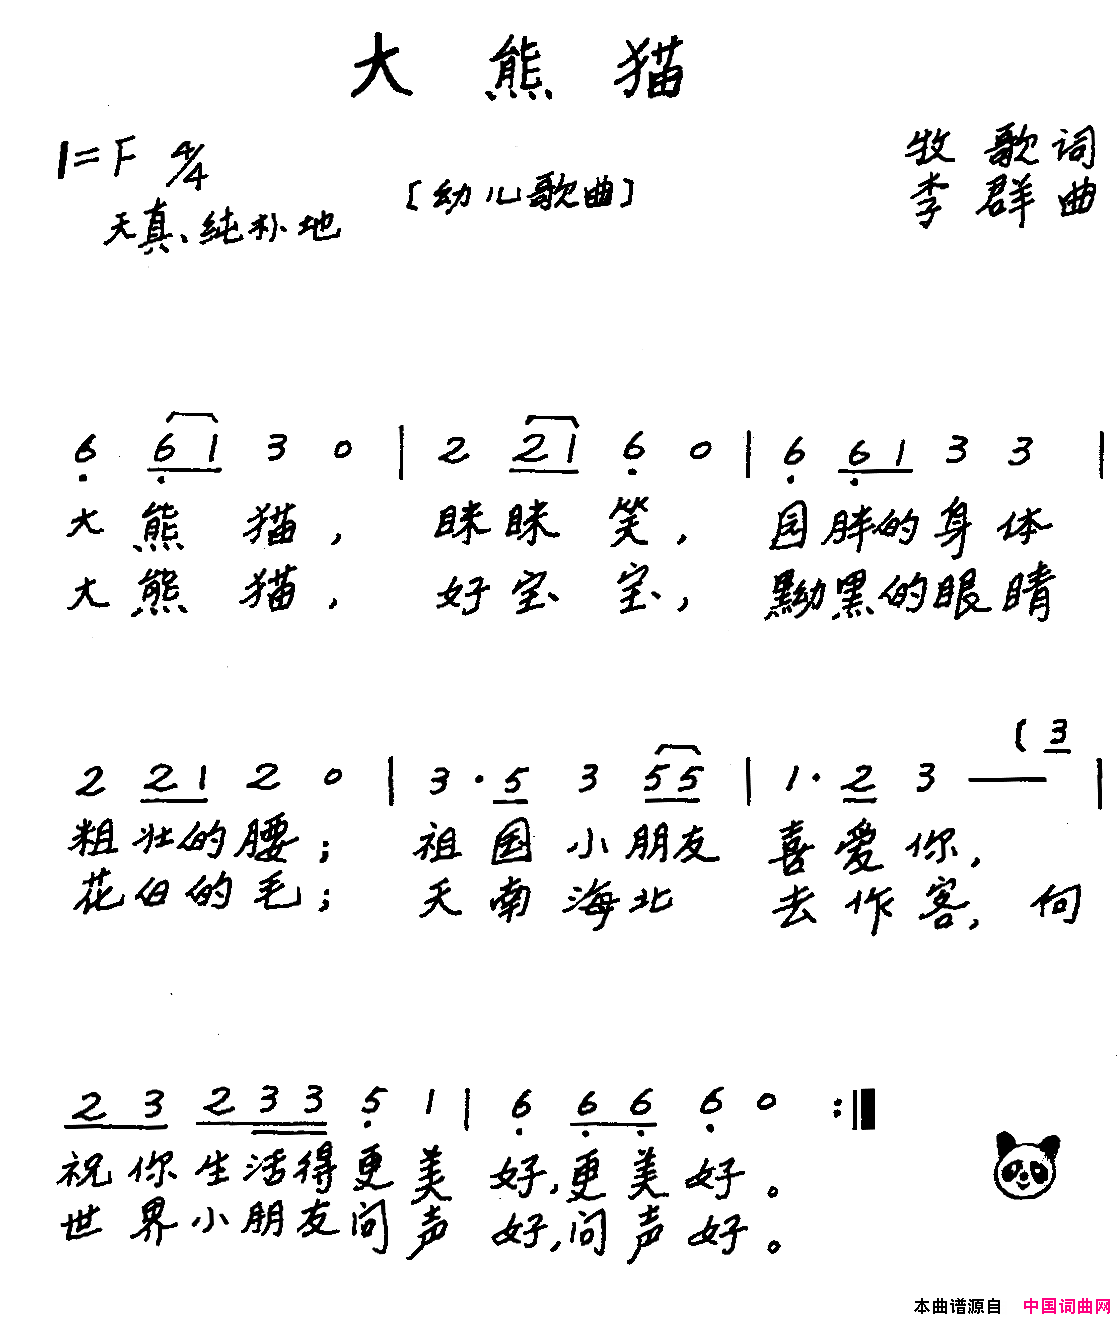 大熊猫
1=F 4/4
牧歌词
[幼儿歌曲]
李群曲
天真、纯朴地
6̣ 6̣ 1 3 0 | 2 2 1 6̣ 0 | 6̣ 6̣ 1 3 3 |
大熊猫, 眯眯笑, 园胖的身体
大熊猫, 好宝宝, 黝黑的眼睛
(3
2 2 1 2 0 | 3 · 5 3 5 5 | 1 · 2 3 — |
粗壮的腰; 祖国小朋友 喜爱你,
花白的毛; 天南海北 去作客, 向
2 3 2 3 3 5̣ 1 | 6̣ 6̣ 6̣ 6̣ 0 :‖
祝你生活得更美好,更美好。
世界小朋友问声好,问声好。
本曲谱源自 中国词曲网